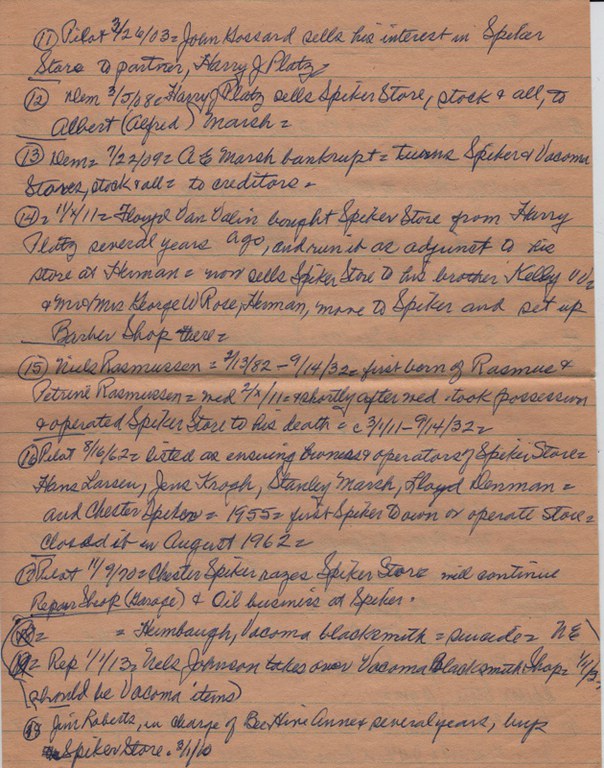 (11) Pilot 3/26/03 = John Gossard sells his interest in Spiker
Store to partner, Harry J. Platz =
(12) Dem 3/5/08 = Harry J Platz sells Spiker Store, stock & all, to
Albert (Alfred) Marsh =
(13) Dem = 7/22/09 = A E Marsh bankrupt = turns Spiker & Vacoma
Stores, stock & all = to creditors =
(14) = 11/4/11 = Floyd Van Valin bought Spiker Store from Harry
Platz several years ago, and run it as adjunct to his
store at Herman = now sells Spiker Store to his brother Kelly V V
& Mr & Mrs George W Rose, Herman, move to Spiker and set up
Barber Shop there =
(15) Niels Rasmussen = 2/13/82 - 9/14/32 = first born of Rasmus &
Petrine Rasmussen = wed 2/ /11 = & shortly after wed took possession
& operated Spiker Store to his death = c 3/1/11 - 9/14/32 =
(16) Pilot 8/16/62 = listed as ensuing owners & operators of Spiker Store =
Hans Larsen, Jens Krogh, Stanley Marsh, Floyd Denman =
and Chester Spiker = 1955 = first Spiker to own or operate store =
Closed it in August 1962 =
(17) Pilot 11/9/70 = Chester Spiker razes Spiker Store will continue
Repair Shop (Garage) & Oil business at Spiker.
= = Heimbaugh, Vacoma blacksmith = suicide = NE
= Rep 1/1/13 = Nels Johnson takes over Vacoma Blacksmith Shop =
(should be Vacoma items)
Jim Roberts, in charge of Bee Hive Annex several years, buys
Spiker Store. 3/1/10